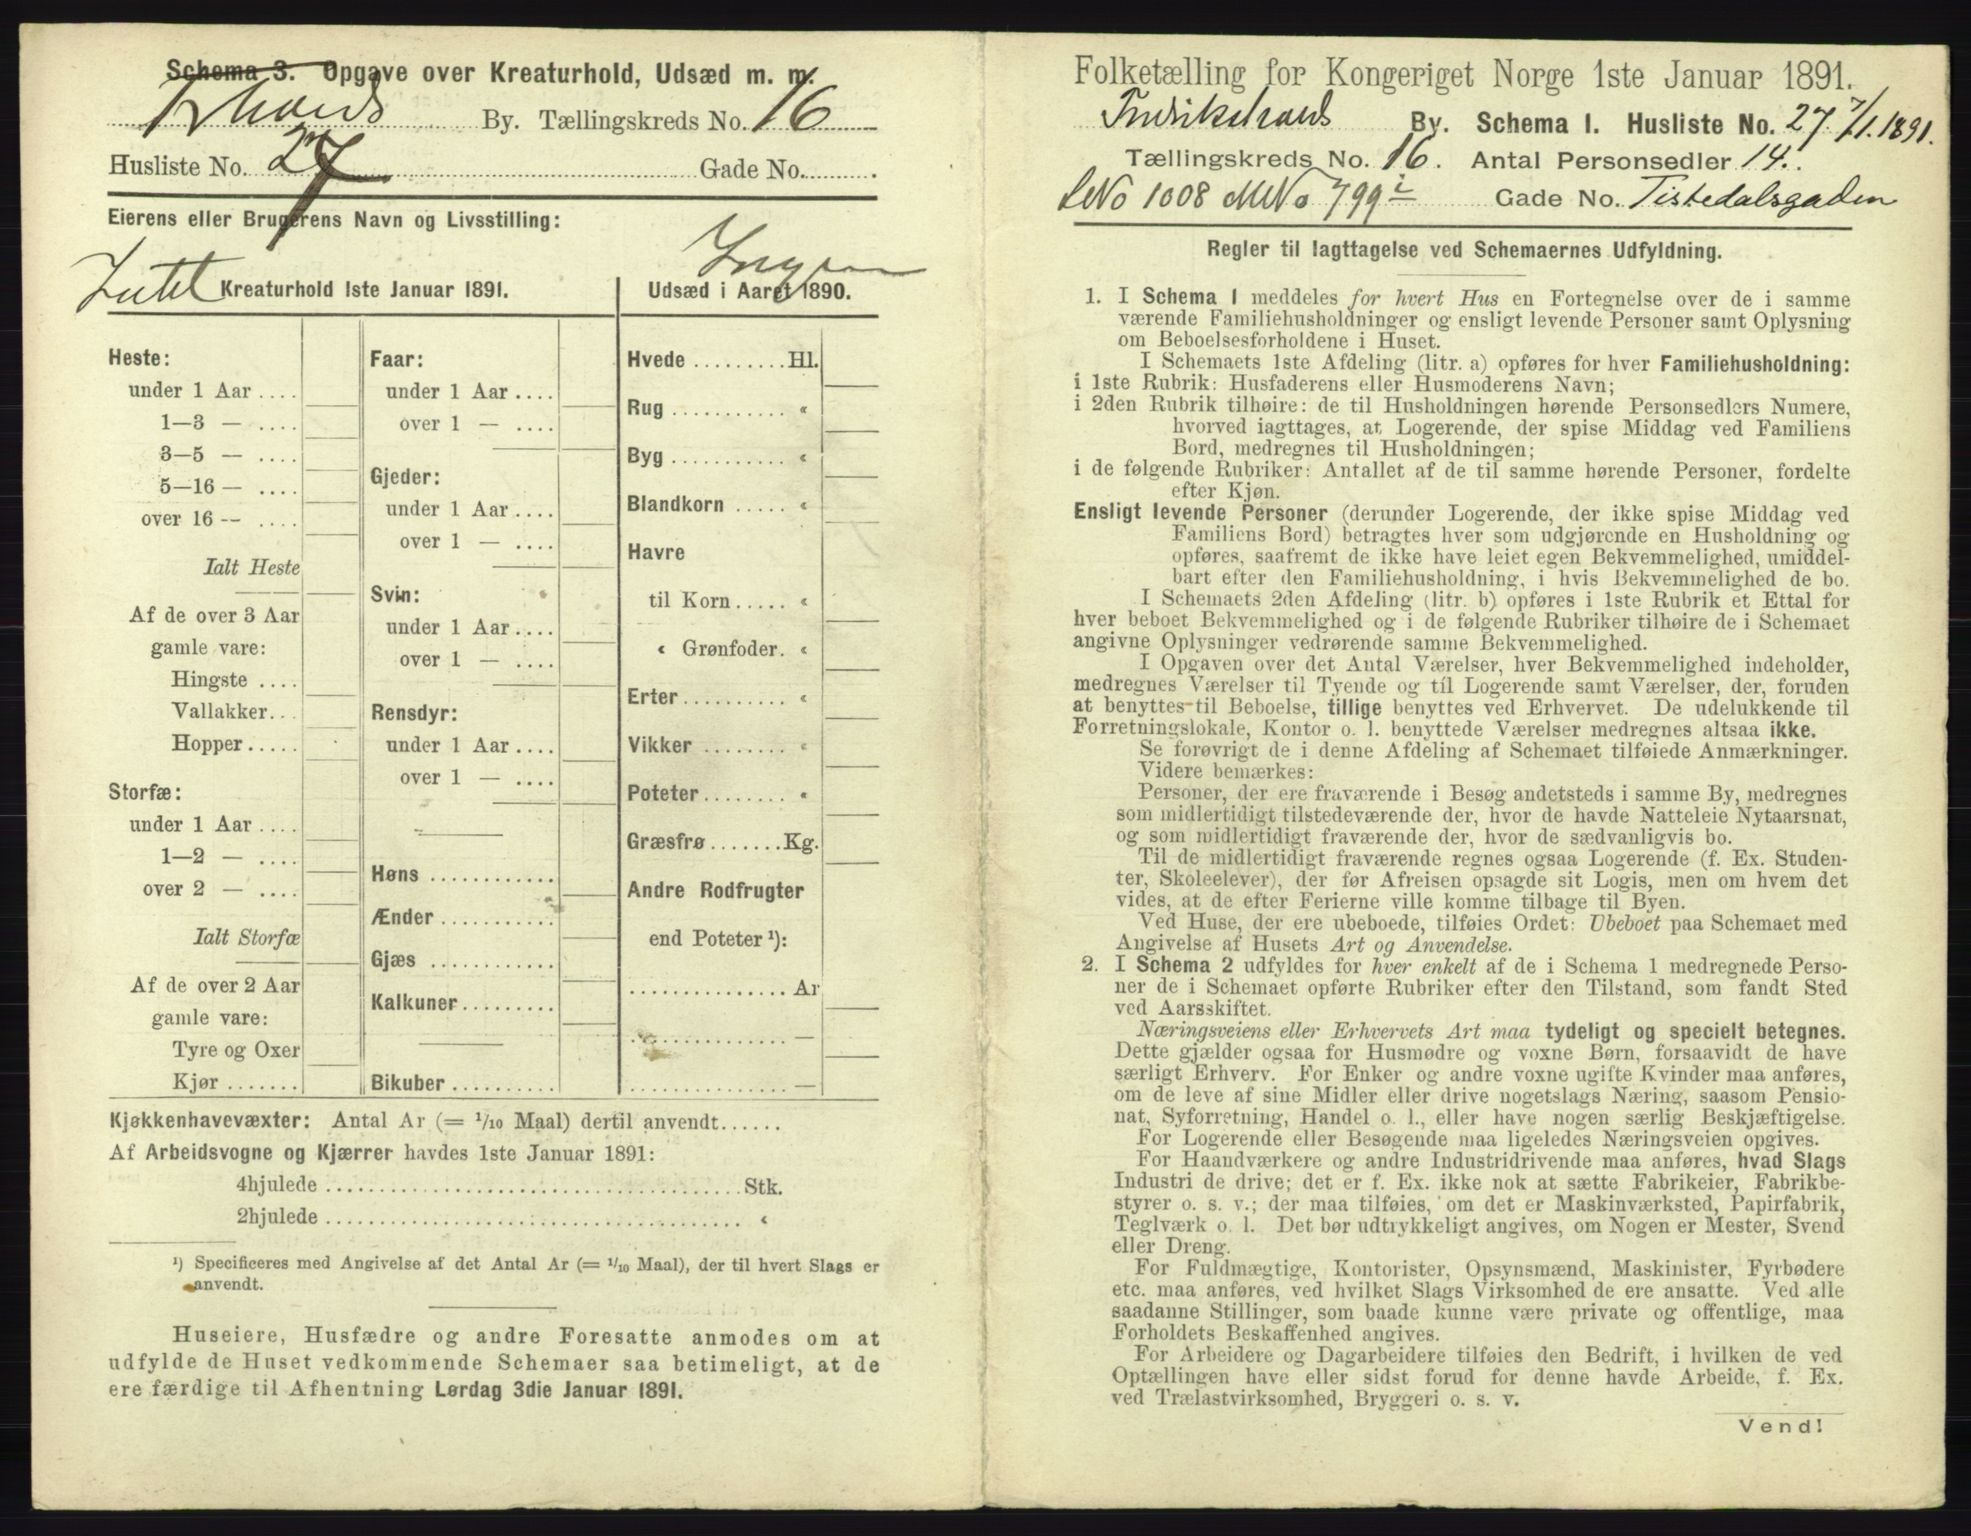 Schema 3. Opgave over Kreaturhold, Udsæd m. m.
Fhalds By. Tællingskreds No. 16
Husliste No. 27 Gade No.
Eierens eller Brugerens Navn og Livsstilling:
Intet Kreaturhold 1ste Januar 1891.
Heste:
under 1 Aar ....
1—3 — ....
3—5 — ....
5—16 — ....
over 16 — ....
Ialt Heste
Af de over 3 Aar
gamle vare:
Hingste ....
Vallakker...
Hopper.....
Storfæ:
under 1 Aar ....
1—2 — ....
over 2 — ....
Ialt Storfæ
Af de over 2 Aar
gamle vare:
Tyre og Oxer
Kjør .......
Faar:
under 1 Aar ....
over 1 — ....
Gjeder:
under 1 Aar ....
over 1 — ....
Svin:
under 1 Aar ....
over 1 — ....
Rensdyr:
under 1 Aar ....
over 1 — ....
Høns ............
Ænder ...........
Gjæs ............
Kalkuner.........
Bikuber ..........
Ingen
Udsæd i Aaret 1890.
Hvede .........Hl.
Rug ........... «
Byg ........... «
Blandkorn ..... «
Havre
til Korn..... «
« Grønfoder. «
Erter.......... «
Vikker ........ «
Poteter........ «
Græsfrø.......Kg.
Andre Rodfrugter
end Poteter ¹):
............... Ar
............... —
............... —
Kjøkkenhavevæxter: Antal Ar (= 1/10 Maal) dertil anvendt......
Af Arbeidsvogne og Kjærrer havdes 1ste Januar 1891:
4hjulede ....................................... Stk.
2hjulede ....................................... «
¹) Specificeres med Angivelse af det Antal Ar (= 1/10 Maal), der til hvert Slags er
anvendt.
Huseiere, Husfædre og andre Foresatte anmodes om at
udfylde de Huset vedkommende Schemaer saa betimeligt, at de
ere færdige til Afhentning Lørdag 3die Januar 1891.
Folketælling for Kongeriget Norge 1ste Januar 1891.
Fredrikshalds By. Schema I. Husliste No. 27. 7/1. 1891.
Tællingskreds No. 16. Antal Personsedler 14.
LNo 1008 MNo 799 Gade No. Tistedalsgaden
Regler til Iagttagelse ved Schemaernes Udfyldning.
1. I Schema 1 meddeles for hvert Hus en Fortegnelse over de i samme
værende Familiehusholdninger og ensligt levende Personer samt Oplysning
om Beboelsesforholdene i Huset.
I Schemaets 1ste Afdeling (litr. a) opføres for hver Familiehusholdning:
i 1ste Rubrik: Husfaderens eller Husmoderens Navn;
i 2den Rubrik tilhøire: de til Husholdningen hørende Personsedlers Numere,
hvorved iagttages, at Logerende, der spise Middag ved Familiens
Bord, medregnes til Husholdningen;
i de følgende Rubriker: Antallet af de til samme hørende Personer, fordelte
efter Kjøn.
Ensligt levende Personer (derunder Logerende, der ikke spise Middag ved
Familiens Bord) betragtes hver som udgjørende en Husholdning og
opføres, saafremt de ikke have leiet egen Bekvemmelighed, umiddel-
bart efter den Familiehusholdning, i hvis Bekvemmelighed de bo.
I Schemaets 2den Afdeling (litr. b) opføres i 1ste Rubrik et Ettal for
hver beboet Bekvemmelighed og i de følgende Rubriker tilhøire de i Schemaet
angivne Oplysninger vedrørende samme Bekvemmelighed.
I Opgaven over det Antal Værelser, hver Bekvemmelighed indeholder,
medregnes Værelser til Tyende og til Logerende samt Værelser, der, foruden
at benyttes til Beboelse, tillige benyttes ved Erhvervet. De udelukkende til
Forretningslokale, Kontor o. l. benyttede Værelser medregnes altsaa ikke.
Se forøvrigt de i denne Afdeling af Schemaet tilføiede Anmærkninger.
Videre bemærkes:
Personer, der ere fraværende i Besøg andetsteds i samme By, medregnes
som midlertidigt tilstedeværende der, hvor de havde Natteleie Nytaarsnat,
og som midlertidigt fraværende der, hvor de sædvanligvis bo.
Til de midlertidigt fraværende regnes ogsaa Logerende (f. Ex. Studen-
ter, Skoleelever), der før Afreisen opsagde sit Logis, men om hvem det
vides, at de efter Ferierne ville komme tilbage til Byen.
Ved Huse, der ere ubeboede, tilføies Ordet: Ubeboet paa Schemaet med
Angivelse af Husets Art og Anvendelse.
2. I Schema 2 udfyldes for hver enkelt af de i Schema 1 medregnede Perso-
ner de i Schemaet opførte Rubriker efter den Tilstand, som fandt Sted
ved Aarsskiftet.
Næringsveiens eller Erhvervets Art maa tydeligt og specielt betegnes.
Dette gjælder ogsaa for Husmødre og voxne Børn, forsaavidt de have
særligt Erhverv. For Enker og andre voxne ugifte Kvinder maa anføres,
om de leve af sine Midler eller drive nogetslags Næring, saasom Pensio-
nat, Syforretning, Handel o. l., eller have nogen særlig Beskjæftigelse.
For Logerende eller Besøgende maa ligeledes Næringsveien opgives.
For Haandværkere og andre Industridrivende maa anføres, hvad Slags
Industri de drive; det er f. Ex. ikke nok at sætte Fabrikeier, Fabrikbe-
styrer o. s. v.; der maa tilføies, om det er Maskinværksted, Papirfabrik,
Teglværk o. l. Det bør udtrykkeligt angives, om Nogen er Mester, Svend
eller Dreng.
For Fuldmægtige, Kontorister, Opsynsmænd, Maskinister, Fyrbødere
etc. maa anføres, ved hvilket Slags Virksomhed de ere ansatte. Ved alle
saadanne Stillinger, som baade kunne være private og offentlige, maa
Forholdets Beskaffenhed angives.
For Arbeidere og Dagarbeidere tilføies den Bedrift, i hvilken de ved
Optællingen have eller sidst forud for denne havde Arbeide, f. Ex.
ved Trælastvirksomhed, Bryggeri o. s. v.
Vend!